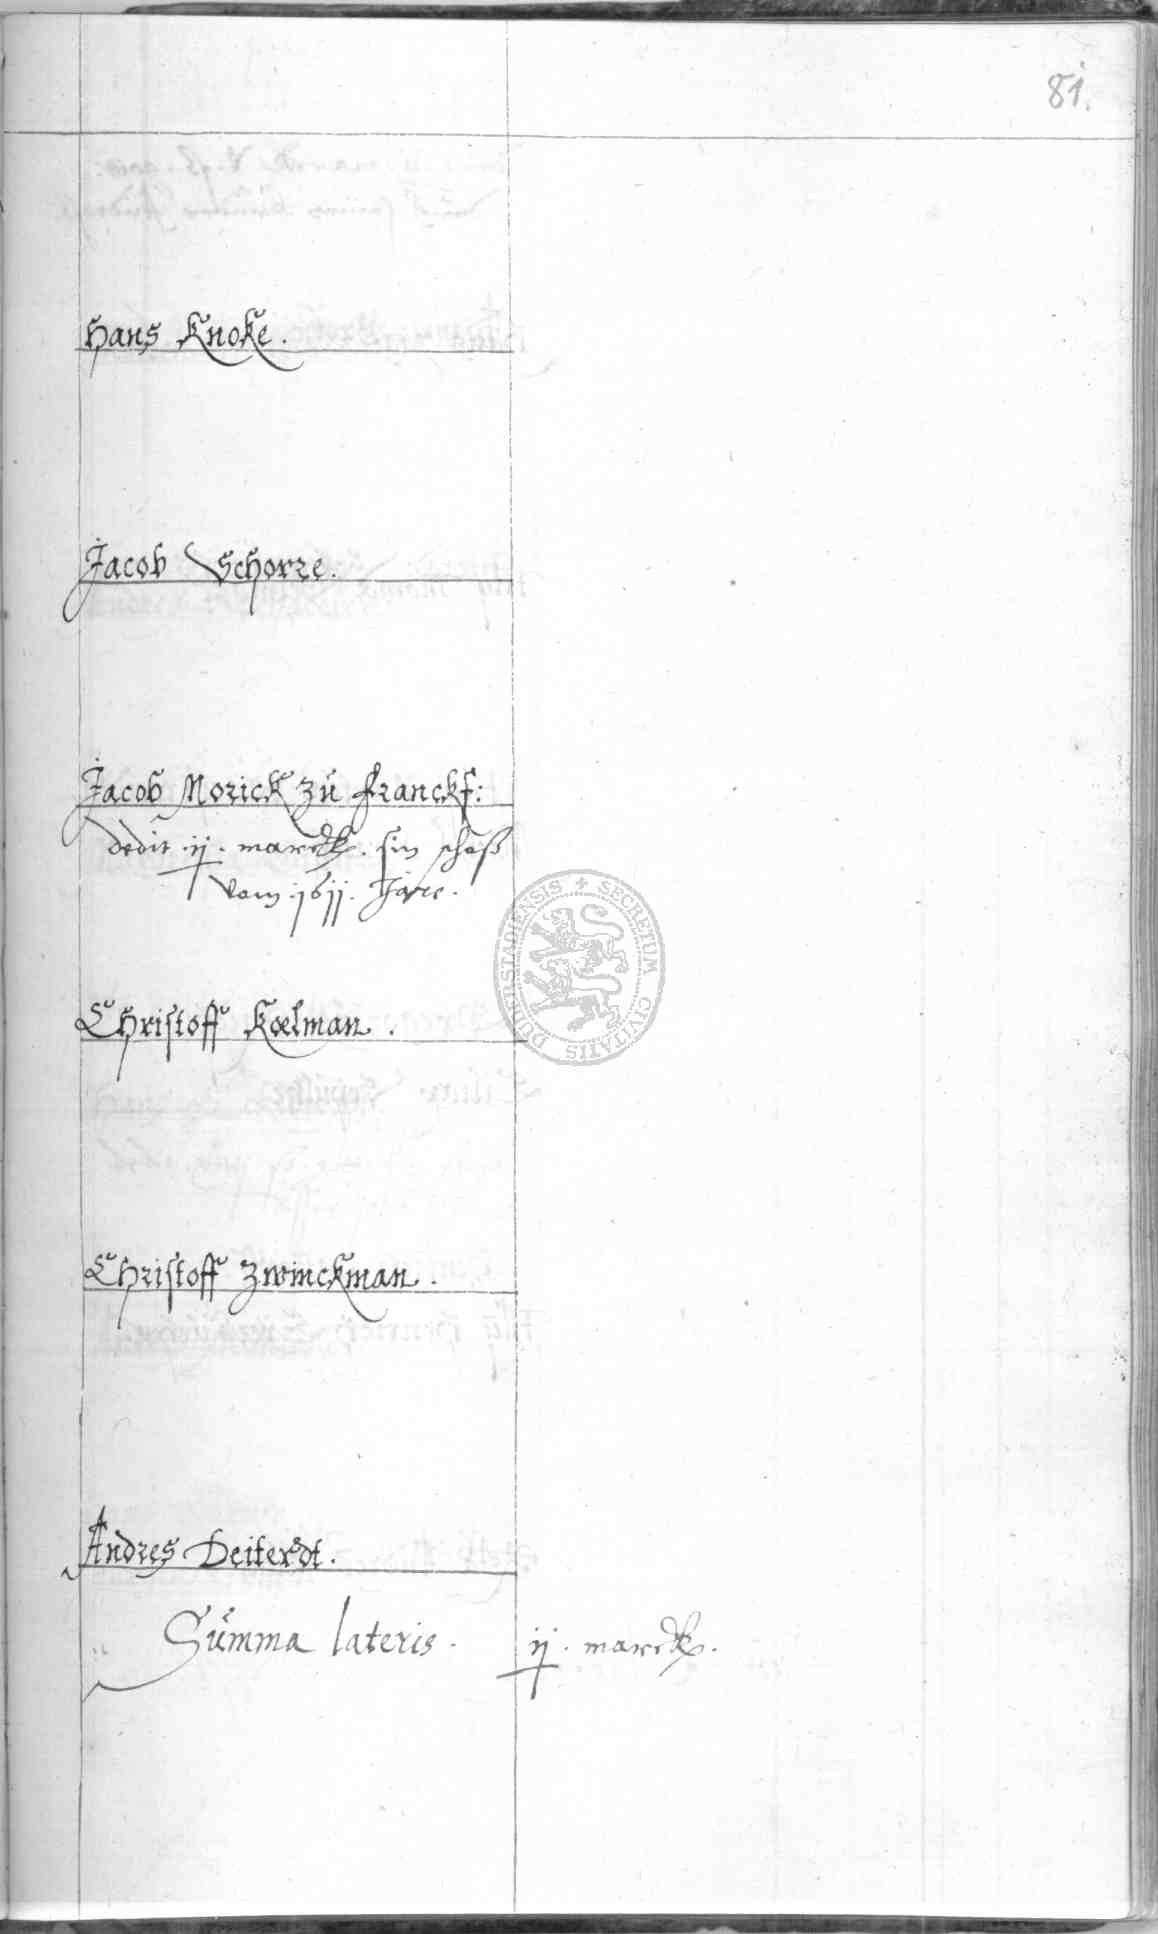 81.
Hans Knoke.
Jacob Schorze.
Jacob Morick zu Franckf:
dedit ij. marck. sin schoß
vom .1611. Jare.
Christoff Koelman.
SECRETUM CIVITATIS DUDERSTADIENSIS
Christoff Zwinckman.
Andres Deiterdt.
Summa lateris. ij. marck.